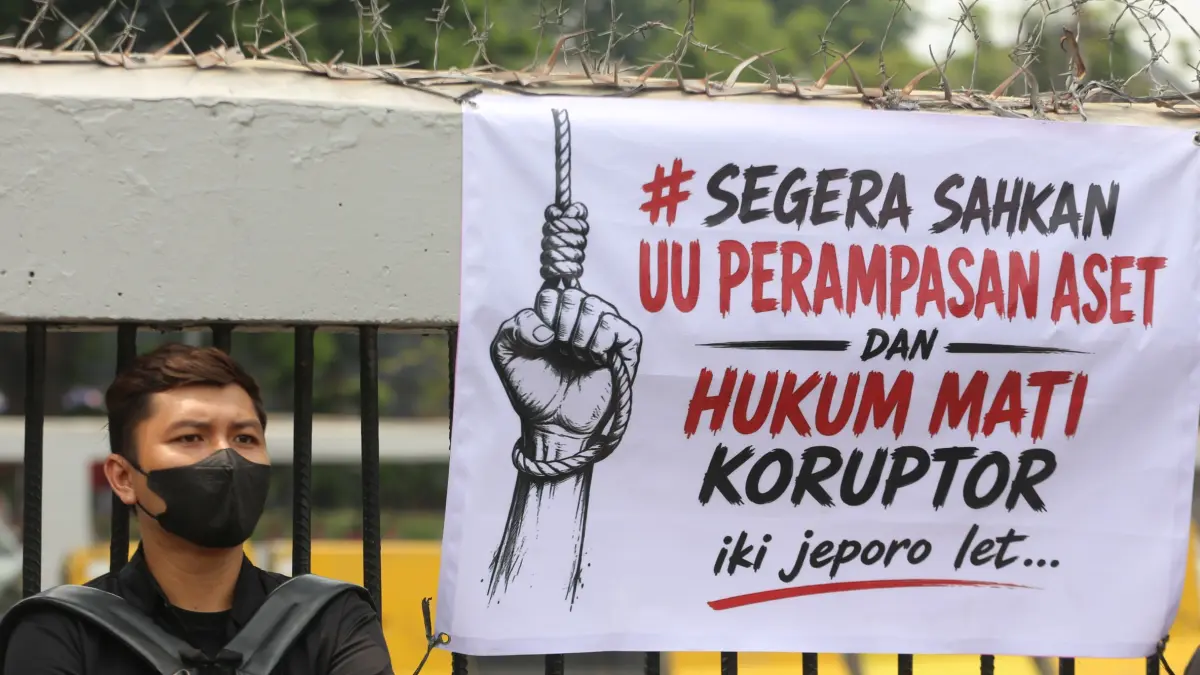 # SEGERA SAHKAN
UU PERAMPASAN ASET
DAN
HUKUM MATI
KORUPTOR
iki jeporo let...